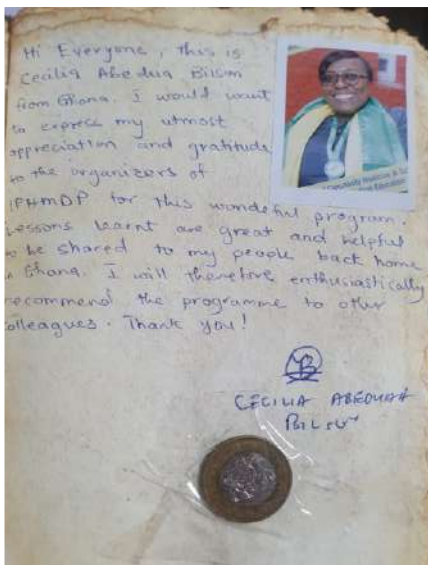 Hi Everyone, this is
Cecilia Abedua Bilson
from Ghana. I would want
to express my utmost
appreciation and gratitude
to the organizers of
IPHMDP for this wonderful program.
Lessons learnt are great and helpful
to be shared to my people back home
in Ghana. I will therefore enthusiastically
recommend the programme to other
colleagues. Thank you!
CECILIA ABEDUAH